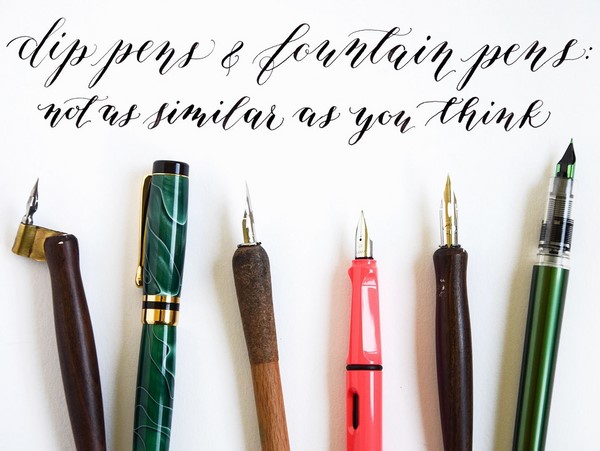 dip pens & fountain pens:
not as similar as you think